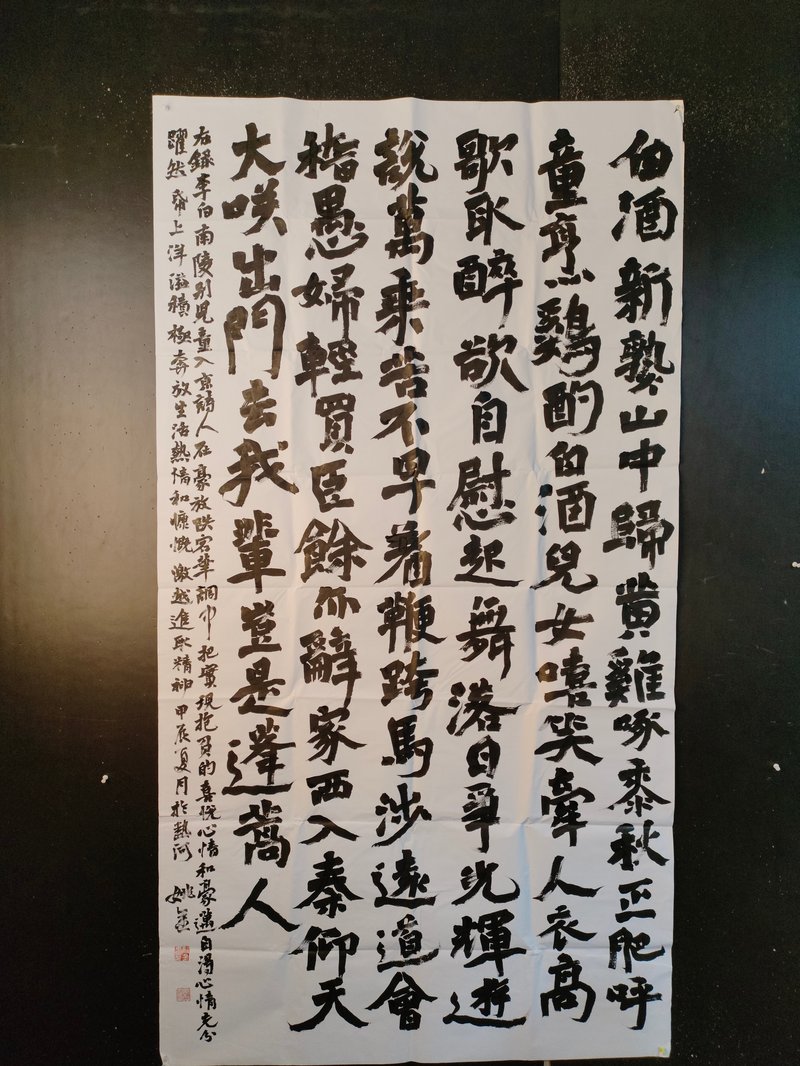 白酒新熟山中歸黄雞啄黍秋正肥呼
童烹鷄酌白酒兒女嘻笑牽人衣高
歌取醉欲自慰起舞落日爭光輝遊
說萬乘苦不早著鞭跨馬涉遠道會
稽愚婦輕買臣餘亦辭家西入秦仰天
大咲出門去我輩豈是蓬蒿人
右録李白南陵别兒童入京詩人在豪放跌宕筆調中把實現抱負的喜悦心情和豪邁自得心情充分
躍然帋上洋溢積極奔放生活熱情和慷慨激越進取精神 甲辰夏月於熱河 姚